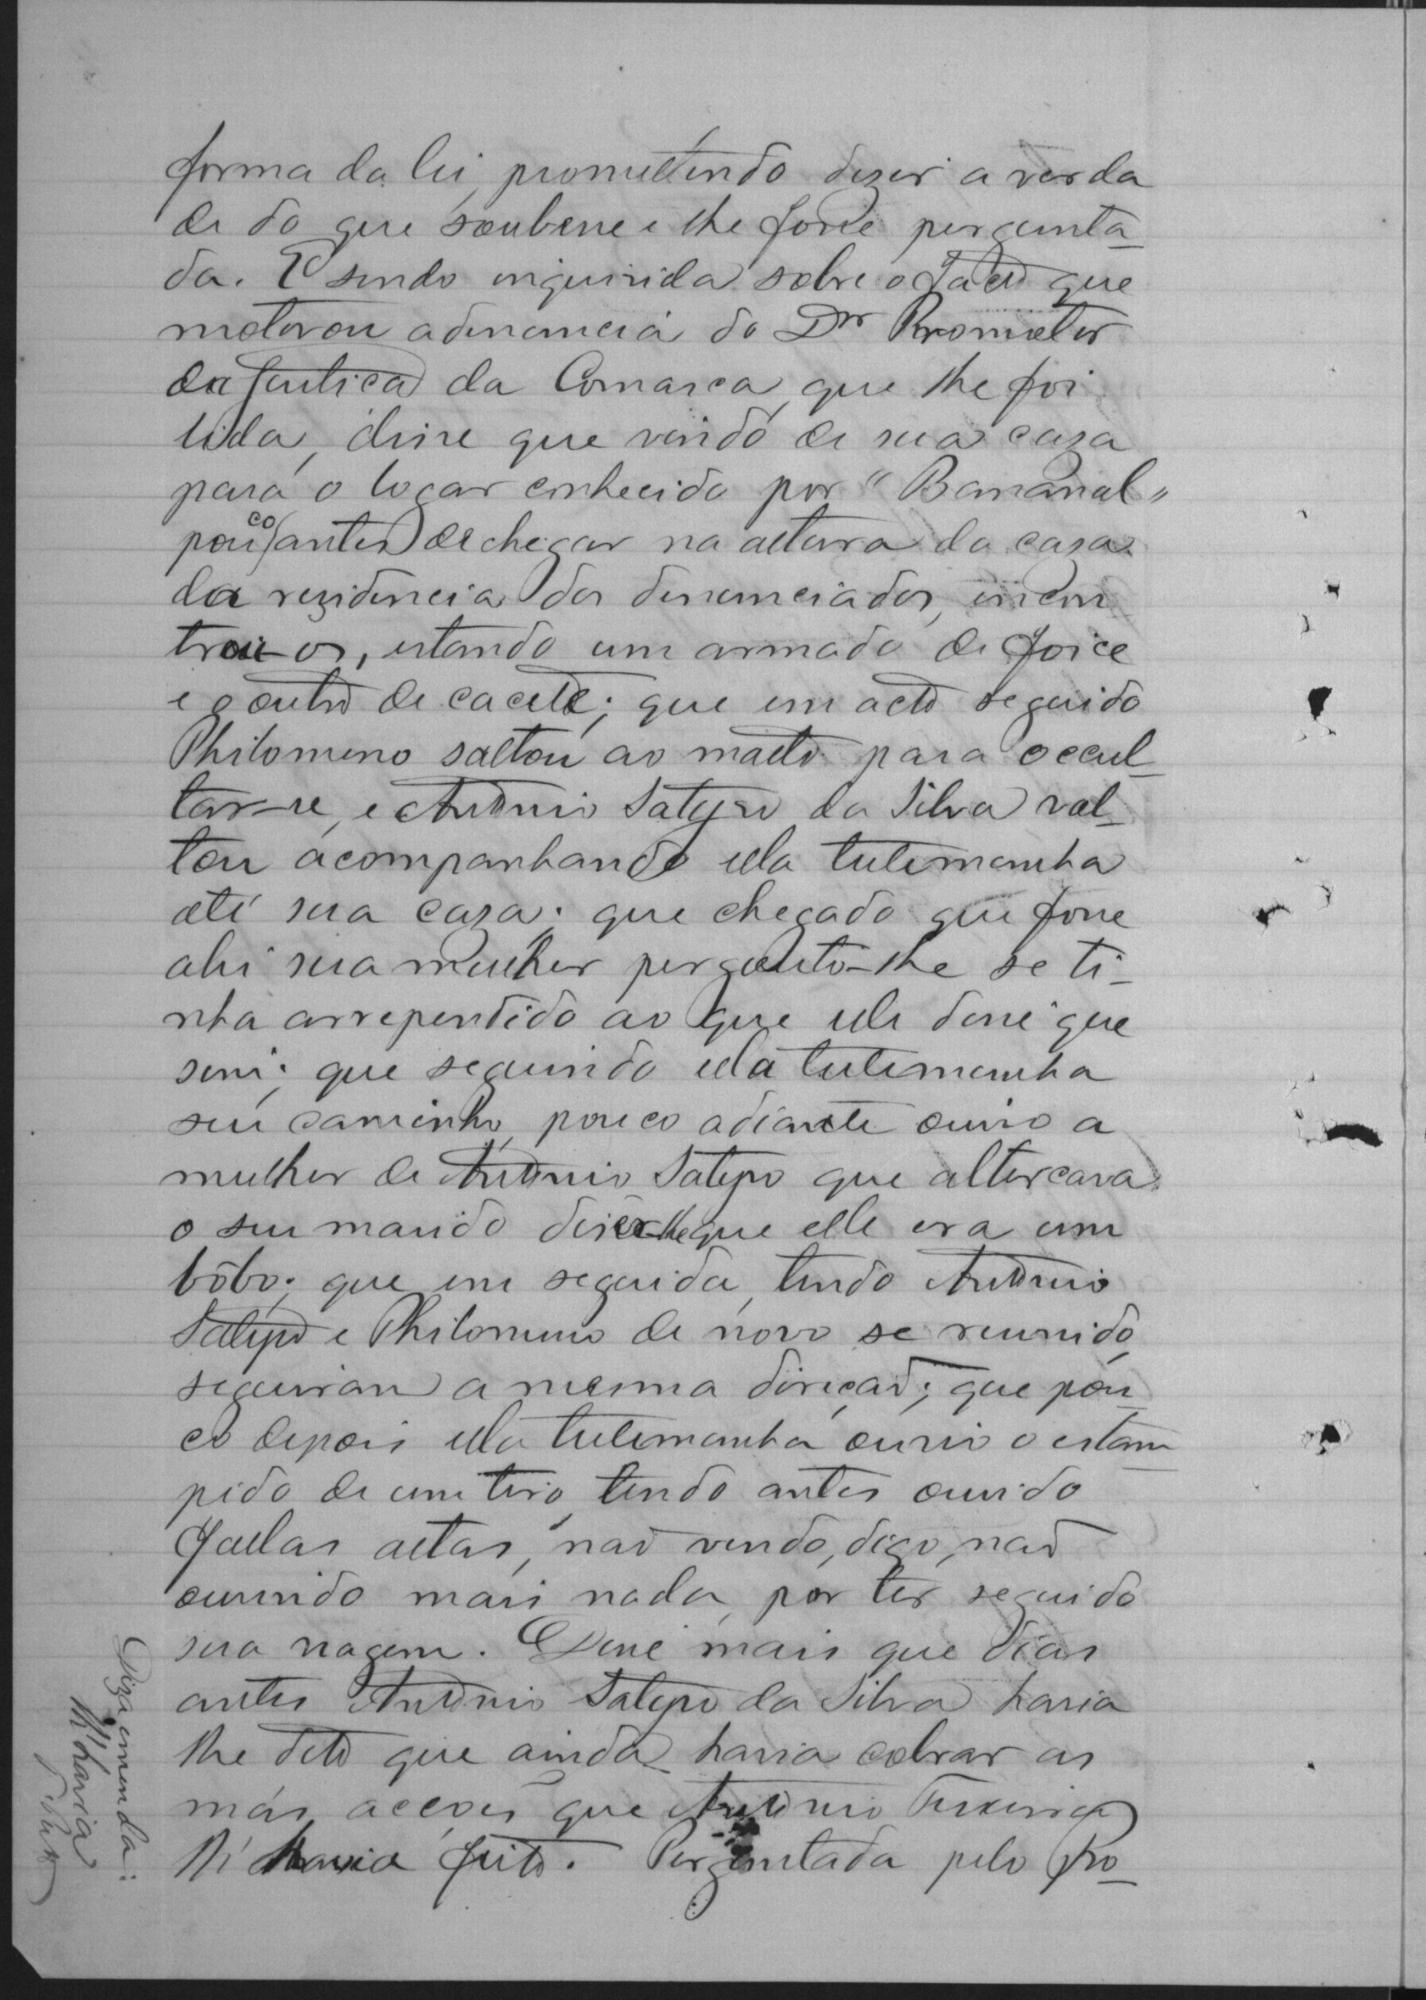 forma da lei, promettendo dizer a verda
de do que soubesse e lhe fosse pergunta-
da. E sendo inquirida sobre o facto que
motivou a denuncia do Dr Promotor
da Justiça da Comarca, que lhe foi
lida, disse que vindo de sua caza
para o logar conhecido por "Bananal"
pouco antes de chegar na altura da caza
da rezidencia dos denunciados, encon
trou-os, estando um armado de foice
e o outro de cacete; que em acto seguido
Philomeno saltou ao matto para occul-
tar-se, e Antonio Satyro da Silva vol-
tou acompanhando ella testemunha
até sua caza; que chegado que fosse
ahi sua mulher perguntou-lhe se ti-
nha arrependido ao que elle disse que
sim; que seguindo ella testemunha
seu caminho, pouco adiante ouvio a
mulher de Antonio Satyro que altercava
o seu marido dizer-lhe que elle era um
bôbo; que em seguida, tendo Antonio
Satyro e Philomeno de novo se reunido,
seguiram a mesma direcção; que pou-
co depois ella testemunha ouvio o estam
pido de um tiro, tendo antes ouvido
fallas altas, não vendo, digo, não
ouvindo mais nada, por ter seguido
sua viagem. Disse mais que dias
antes Antonio Satyro da Silva havia
lhe dito que ainda havia cobrar as
más acções que Antonio Teixeira
lh'havia feito. Perguntada pelo Pro-
Diga emenda:
lh'havia